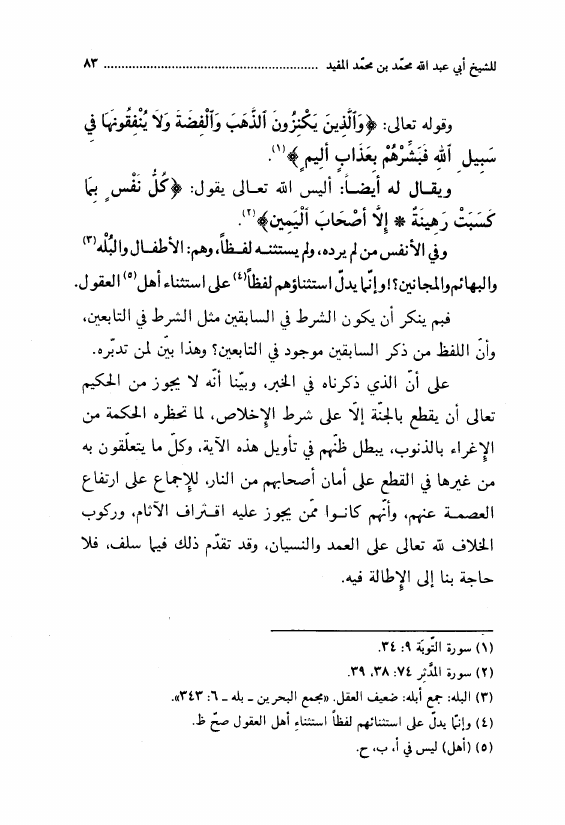 للشيخ أبي عبد الله محمّد بن محمّد المفيد ........................................................ ٨٣
وقوله تعالى: ﴿وَٱلَّذِينَ يَكْنِزُونَ ٱلذَّهَبَ وَٱلْفِضَّةَ وَلاَ يُنْفِقُونَهَا فِي
سَبِيلِ ٱللَّهِ فَبَشِّرْهُمْ بِعَذَابٍ أَلِيمٍ﴾(١).
ويقـال له أيضـاً: أليس الله تعـالى يقول: ﴿كُلُّ نَفْسٍ بِمَا
كَسَبَتْ رَهِينَةٌ * إِلَّا أَصْحَابَ ٱلْيَمِينِ﴾(٢).
وفي الأنفس من لم يرده، ولم يستثنـه لفـظاً، وهم: الأطفـال والبُلْه(٣)
والبهائم والمجانين؟! وإنّما يدلّ استثناؤهم لفظاً(٤) على استثناء أهل(٥) العقول.
فبم ينكر أن يكون الشرط في السابقين مثل الشرط في التابعين،
وأنّ اللفظ من ذكر السابقين موجود في التابعين؟ وهذا بيّن لمن تدبّره.
على أنّ الذي ذكرناه في الخبر، وبيّنا أنّه لا يجوز من الحكيم
تعالى أن يقطع بالجنّة إلّا على شرط الإخلاص، لما تحظره الحكمة من
الإغراء بالذنوب، يبطل ظنّهم في تأويل هذه الآية، وكلّ ما يتعلّقون به
من غيرها في القطع على أمان أصحابهم من النار، للإجماع على ارتفاع
العصمـة عنهم، وأنّهم كانـوا ممّن يجوز عليه اقـتراف الآثام، وركوب
الخلاف لله تعالى على العمد والنسيان، وقد تقدّم ذلك فيما سلف، فلا
حاجة بنا إلى الإطالة فيه.
(١) سورة التوبَة ٩: ٣٤.
(٢) سورة المدَّثر ٧٤: ٣٨، ٣٩.
(٣) البله: جمع أبله: ضعيف العقل. «مجمع البحرين ـ بله ـ ٦: ٣٤٣».
(٤) وإنّما يدلّ على استثنائهم لفظاً استثناء أهل العقول صحّ ظ.
(٥) (أهل) ليس في أ، ب، ح.